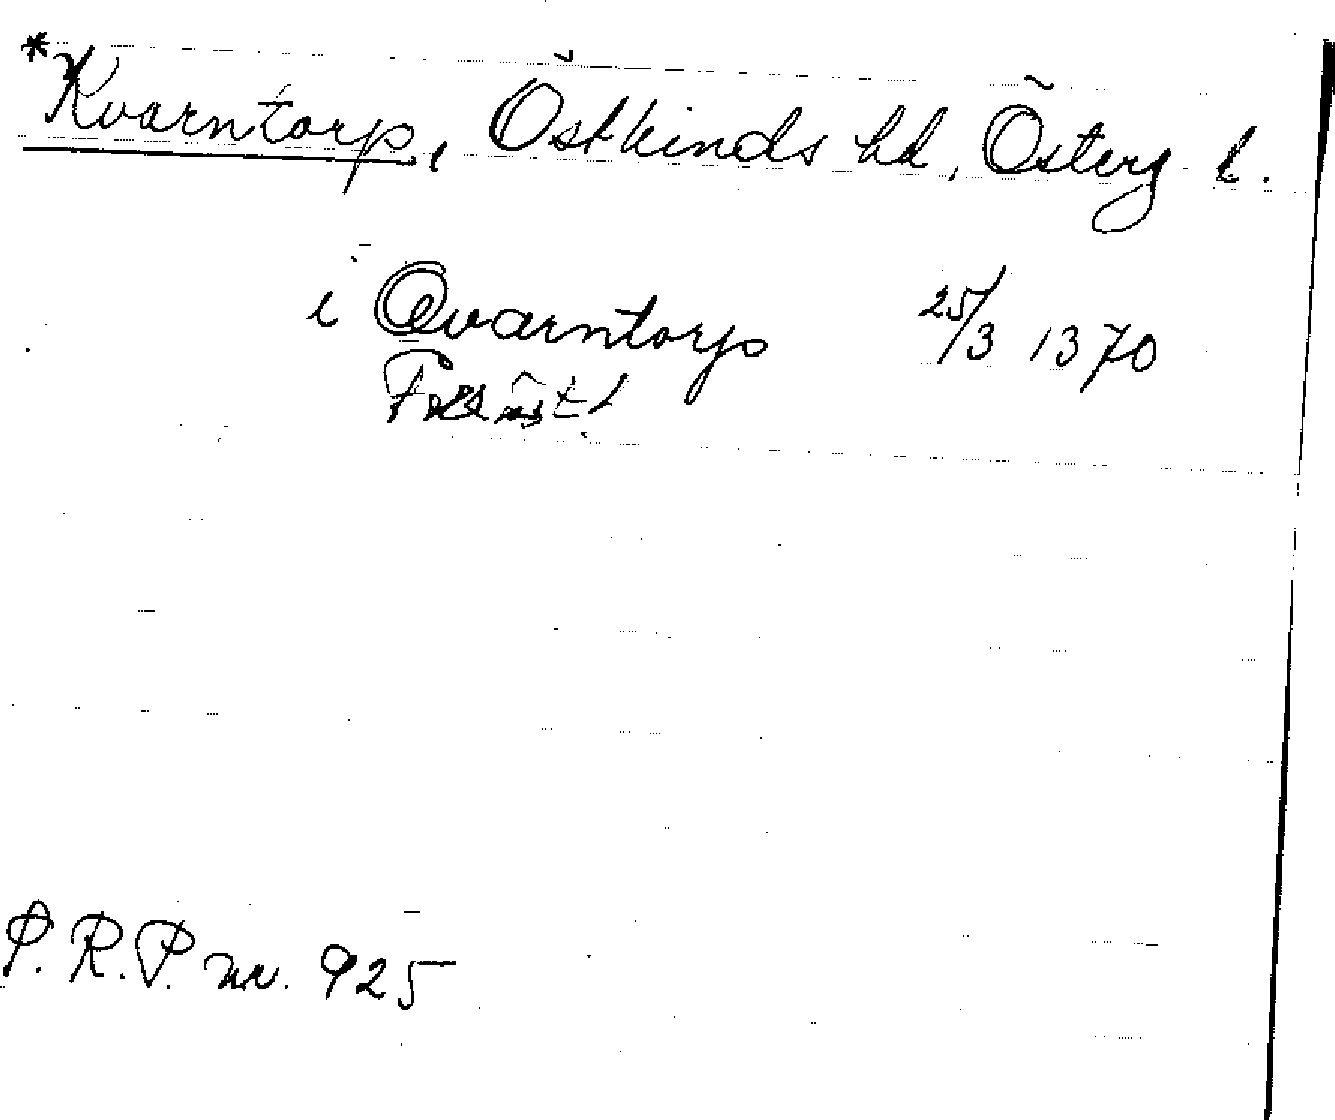 *Kvarntorp, Östkinds hd, Österg l.
i Qvarntorp 25/3 1370
P.R.P. nr. 925